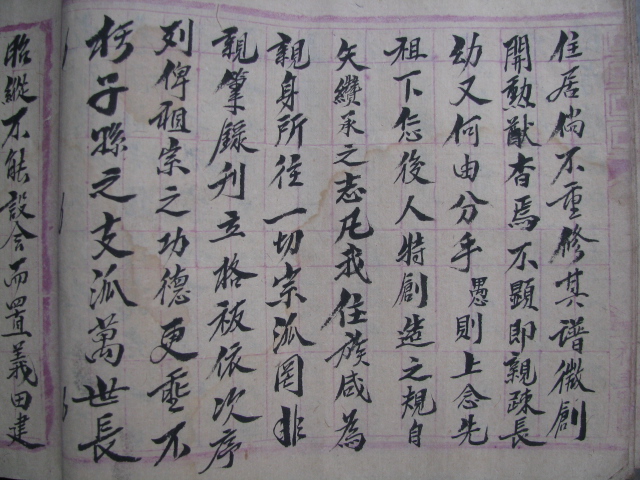 住居倘不重修其谱微創
開勳猷杳焉不顯即親疎長
幼又何由分乎愚則上念先
祖下恁後人特創造之規自
矢纘承之志凡我住族咸為
親身所往一切宗派罔非
親筆錄刋立格板依次序
列俾祖宗之功德更垂不
朽子孫之支派萬世長
昭縱不能設合而置義田建